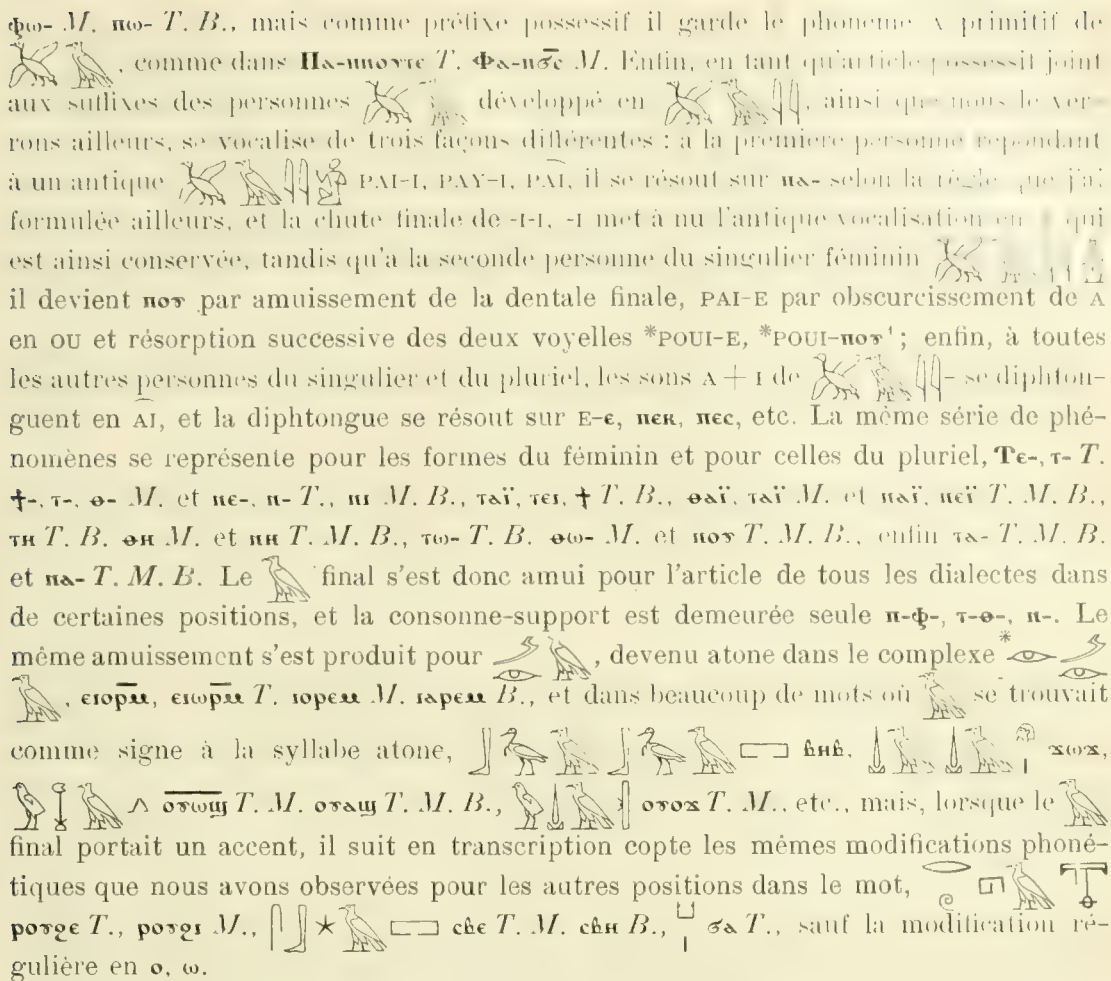 ⲫⲱ- M. ⲡⲱ- T. B., mais comme préfixe possessif il garde le phonème A primitif de
, comme dans Ⲡⲁ-ⲛⲛⲟⲩⲧⲉ T. Ⲫⲁ-ⲛϭ̅ⲥ̅ M. Enfin, en tant qu'article possessif joint
aux suffixes des personnes développé en , ainsi que nous le ver-
rons ailleurs, se vocalise de trois façons différentes : à la première personne répondant
à un antique PAI-I, PAY-I, PAI, il se résout sur ⲡⲁ- selon la règle que j'ai
formulée ailleurs, et la chute finale de -I-I, -I met à nu l'antique vocalisation en qui
est ainsi conservée, tandis qu'à la seconde personne du singulier féminin
il devient ⲡⲟⲩ par amuissement de la dentale finale, PAI-E par obscurcissement de A
en OU et résorption successive des deux voyelles *POUI-E, *POUI-ⲡⲟⲩ¹ ; enfin, à toutes
les autres personnes du singulier et du pluriel, les sons A + I de - se diphton-
guent en AI, et la diphtongue se résout sur E-ⲉ, ⲡⲉⲕ, ⲡⲉⲥ, etc. La même série de phé-
nomènes se représente pour les formes du féminin et pour celles du pluriel, Ⲧⲉ-, ⲧ- T.
ϯ-, ⲧ-, ⲑ- M. et ⲛⲉ-, ⲛ- T., ⲛⲓ M. B., ⲧⲁⲓ̈, ⲧⲉⲓ, ϯ T. B., ⲑⲁⲓ̈, ⲧⲁⲓ̈ M. et ⲛⲁⲓ̈, ⲛⲉⲓ̈ T. M. B.,
ⲧⲏ T. B. ⲑⲏ M. et ⲛⲏ T. M. B., ⲧⲱ- T. B. ⲑⲱ- M. et ⲛⲟⲩ T. M. B., enfin ⲧⲁ- T. M. B.
et ⲛⲁ- T. M. B. Le final s'est donc amui pour l'article de tous les dialectes dans
de certaines positions, et la consonne-support est demeurée seule ⲡ-ⲫ-, ⲧ-ⲑ-, ⲛ-. Le
même amuissement s'est produit pour , devenu atone dans le complexe *
, ⲉⲓⲟⲣⲙ̅, ⲉⲓⲱⲣⲙ̅ T. ⲓⲟⲣⲉⲙ M. ⲓⲁⲣⲉⲙ B., et dans beaucoup de mots où se trouvait
comme signe à la syllabe atone, ⲃⲏⲃ, ϫⲱϫ,
ⲟⲩⲱϣ T. M. ⲟⲩⲁϣ T. M. B., ⲟⲩⲟϫ T. M., etc., mais, lorsque le
final portait un accent, il suit en transcription copte les mêmes modifications phoné-
tiques que nous avons observées pour les autres positions dans le mot,
ⲣⲟⲩϩⲉ T., ⲣⲟⲩϩⲓ M., ⲥⲃⲉ T. M. ⲥⲃⲏ B., ϭⲁ T., sauf la modification ré-
gulière en ⲟ, ⲱ.